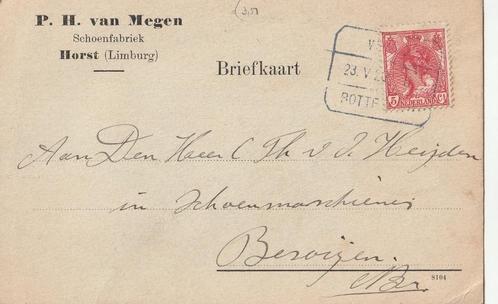 (3,50
P. H. van Megen
Schoenfabriek
Horst (Limburg)
Briefkaart
23. V 2
ROTTE
5 NEDERLAND Ct
Aan Den Heer C Th v. d. Heijden
in Schoenmaschienes
8104